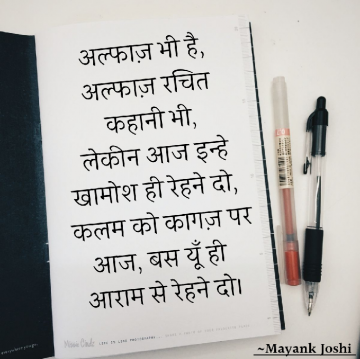 अल्फाज़ भी है,
अल्फाज़ रचित
कहानी भी,
लेकीन आज इन्हे
खामोश ही रेहने दो,
कलम को कागज़ पर
आज, बस यूँ ही
आराम से रेहने दो।
~Mayank Joshi